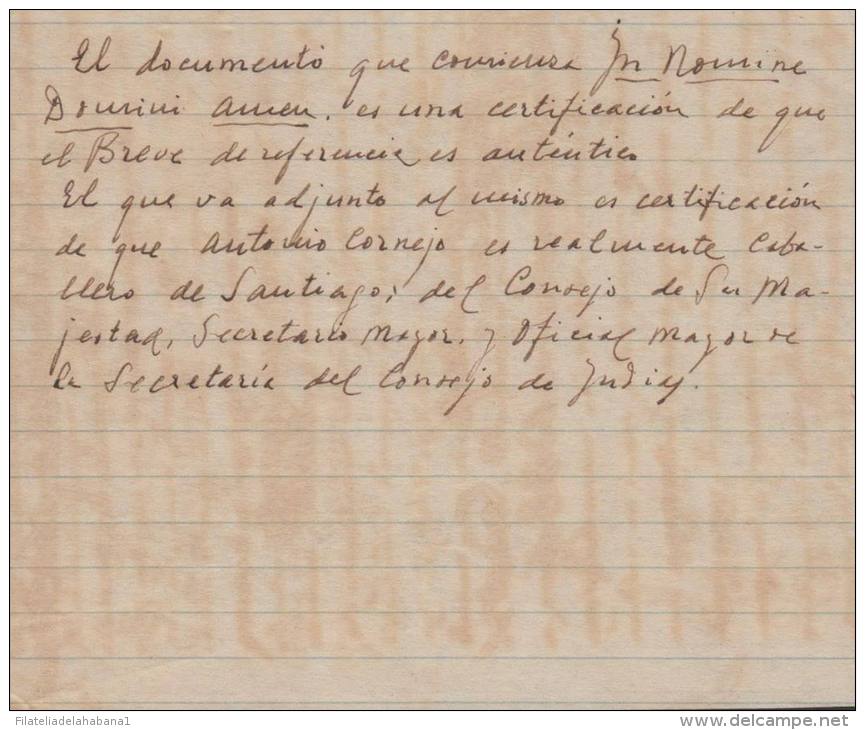 El documento que comienza In Nomine
Domini Amen. es una certificación de que
el Breve de referencia es auténtico
El que va adjunto al mismo es certificación
de que Antonio Cornejo es realmente Caba-
llero de Santiago, del Consejo de Su Ma-
jestad, Secretario Mayor. y Oficial Mayor de
la Secretaría del Consejo de Indias.
Filateliadelahabana1
www.delcampe.net